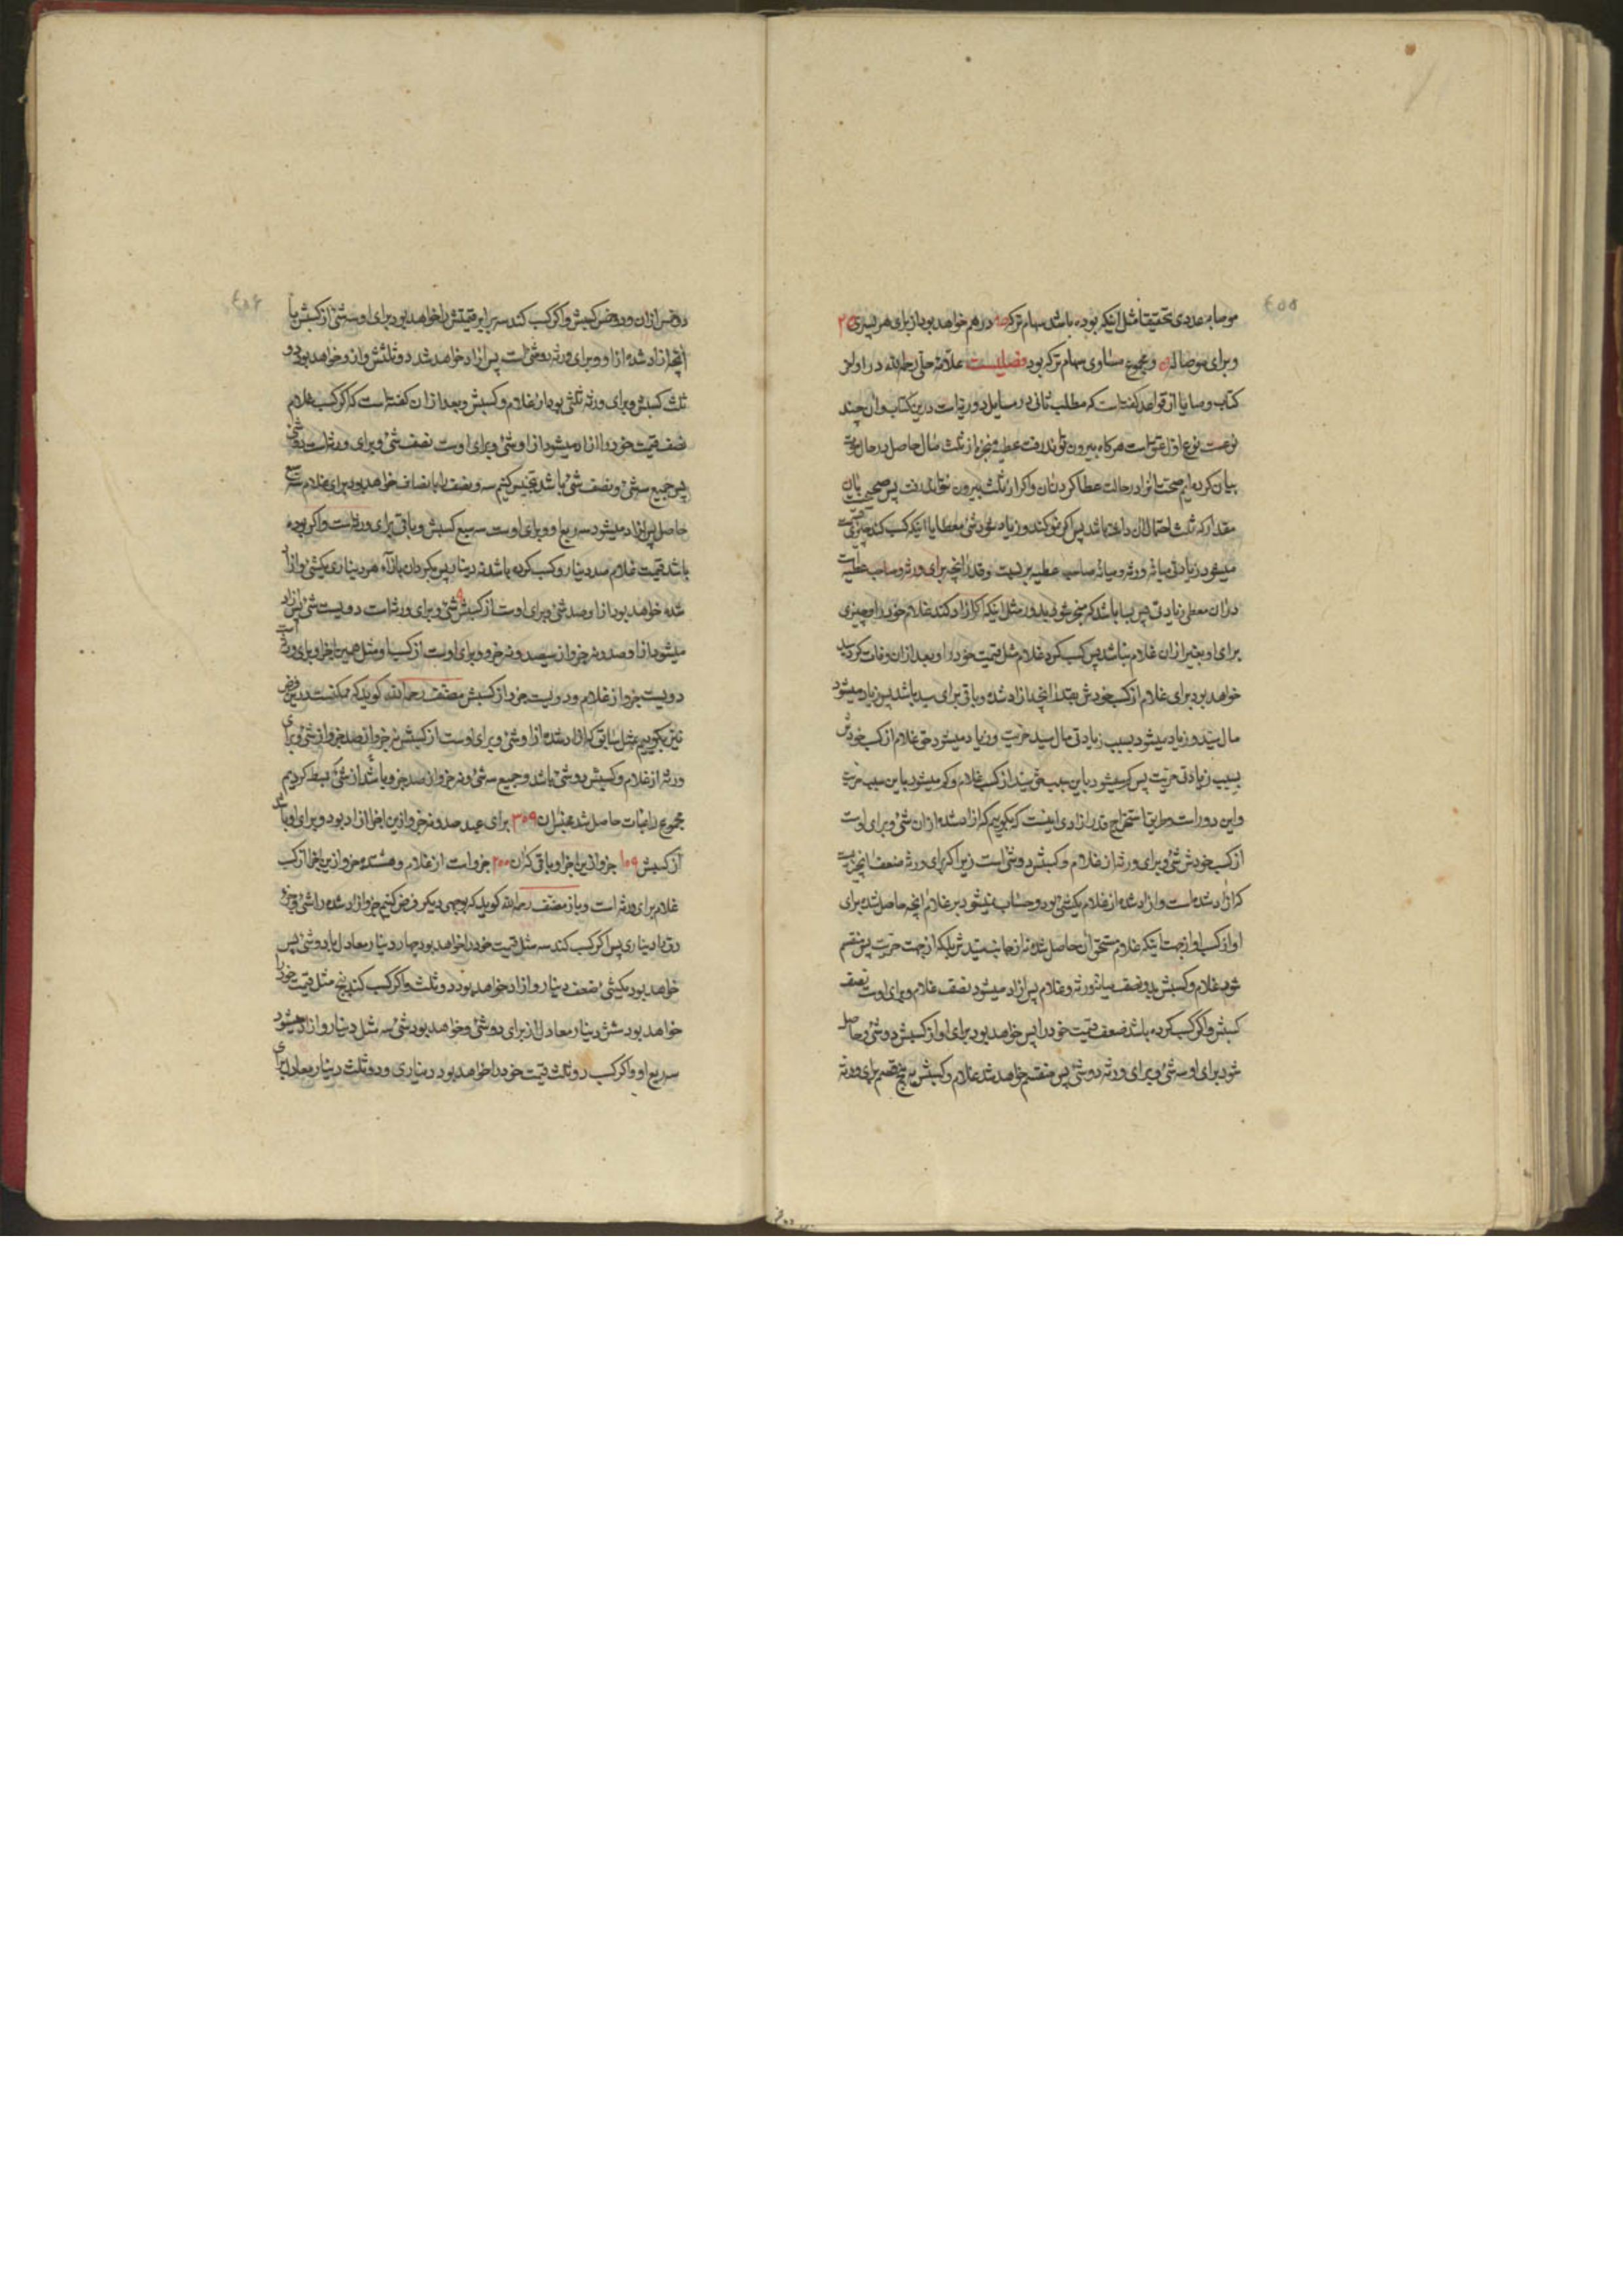 ۴۵۵
موصا به عددی تحقیقا مثل اینکه بوده باشد سهام ترکه در هم خواهد بود از برای هر پسری ۲۵
و برای موصا له و مجموع مساوی سهام ترکه بود فصلیست علامه حلی رحمه الله در اواخر
کتاب وصایا از قواعد گفته است که مطلب ثانی در مسایل دوریات درین کتاب و ان چند
نوعست نوع اول عتق است هر گاه بیرون تواند رفت عطیه منجزه از ثلث مال حاصل در حال موت
بیان کرده ایم صحت انرا در حالت عطا کردن ان و اکر از ثلث بیرون نتواند رفت پس صحیحست بان
مقدار که ثلث احتمال ان داشته باشد پس اکر نمو کند و زیاده شود شیء معطا یا اینکه کسب کند چیزی قسمت
میشود زیادتی میانه ورثه و میانه صاحب عطیه بر نسبت و قدر انچه برای ورثه و صاحب عطیه است
در ان معطی زیادتی پس بسا باشد که منجر شود بدور مثل اینکه اکر ازاد کند غلام خود را و چیزی
برای او بغیر از ان غلام نباشد پس کسب کرد غلام مثل قیمت خود را و بعد از ان وفات کرد سید
خواهد بود برای غلام از کسب خودش بقدر انچه ازاد شده و باقی برای سید باشد پس زیاد میشود
مال سید و زیاد میشود بسبب زیادتی مال سید حریت و زیاد میشود حق غلام از کسب خودش
بسبب زیادتی حریت پس کم میشود باین سبب حق سید از کسب غلام و کم میشود باین سبب حریت
و این دور است و طریق استخراج قدر ازادی اینست که بگوییم که ازاد شده از ان شیء و برای اوست
از کسب خودش شیء و برای ورثه از غلام و کسبش دو شیء است زیرا که برای ورثه ضعف انچیزیست
که ازاد شده است و ازاد شده از غلام یکشیء بود و حساب نمیشود بر غلام انچه حاصل شده برای
او از کسب او از جهت اینکه غلام مستحق ان حاصل شده نه از جانب سیدش بلکه از جهت حریت پس منقسم
شود غلام و کسبش بدو نصف میانه ورثه و غلام پس ازاد میشود نصف غلام و برای اوست نصف
کسبش و اکر کسب کرده باشد ضعف قیمت خود را پس خواهد بود برای او از کسبش دو شیء و حاصل
شود برای او سه شیء و برای ورثه دو شیء پس منقسم خواهد شد غلام و کسبش بر پنج قسم برای ورثه
دو خمس
۴۵۶
دو خمس از ان و دو خمس کسبش و اکر کسب کند سه برابر قیمتش را خواهد بود برای او سه شیء از کسبش با
انچه ازاد شده از او و برای ورثه دو شیء است پس ازاد خواهد شد دو ثلثش و از و خواهد بود دو
ثلث کسبش و برای ورثه ثلثی بود از غلام و کسبش و بعد از ان گفته است که اکر کسب غلام
نصف قیمت خود را ازاد میشود از او شیء و برای اوست نصف شیء و برای ورثه است دو شیء
پس جمیع سه شیء و نصف شیء باشد تجنیس کنیم سه و نصف را با نصاف خواهد بود برای غلام سه سبع
حاصل پس ازاد میشود سه سبع او و برای اوست سه سبع کسبش و باقی برای ورثه است و اکر بوده
باشد قیمت غلام صد دینار و کسب کرده باشد نه دینار پس بگردان بازاء هر دیناری یکشیء و ازاد
شده خواهد بود از او صد شیء و برای اوست از کسبش ۹ شیء و برای ورثه است دویست شیء پس ازاد
میشود از او صد و نه جزو از سیصد و نه جزو و برای اوست از کسب او مثل همین اجزا و برای ورثه است
دویست جزو از غلام و دویست جزو از کسبش مصنف رحمه الله گوید که ممکنست درین فرض
نیز بگوییم مثل سابق که ازاد شده از او شیء و برای اوست از کسبش نه جزو از صد جزو از شیء و برای
ورثه از غلام و کسبش دو شیء باشد و جمیع سه شیء و نه جزو از صد جزو باشد از شیء بسط کردیم
مجموع را مات حاصل شد عتق ان ۳۰۹ برای عبد صد و نه جزو ازین اجزا ازاد بود و برای او باشد
از کسبش ۱۰۹ جزو ازین اجزا و باقی که ان ۲۰۰ جزو است از غلام و هشتده جزو ازین اجزا از کسب
غلام برای ورثه است و باز مصنف رحمه الله گوید که بوجهی دیگر فرض کنیم جزو ازاد شده را شیء و جزو
رق را دیناری پس اکر کسب کند سه مثل قیمت خود را خواهد بود چهار دینار معادل با دو شیء پس
خواهد بود یکشیء ضعف دینار و ازاد خواهد بود دو ثلث و اکر کسب کند پنج مثل قیمت خود را
خواهد بود شش دینار معادل از برای دو شیء و خواهد بود شیء سه مثل دینار و ازاد میشود
سه ربع او و اکر کسب دو ثلث قیمت خود را خواهد بود دیناری و دو ثلث دینار معادل برای